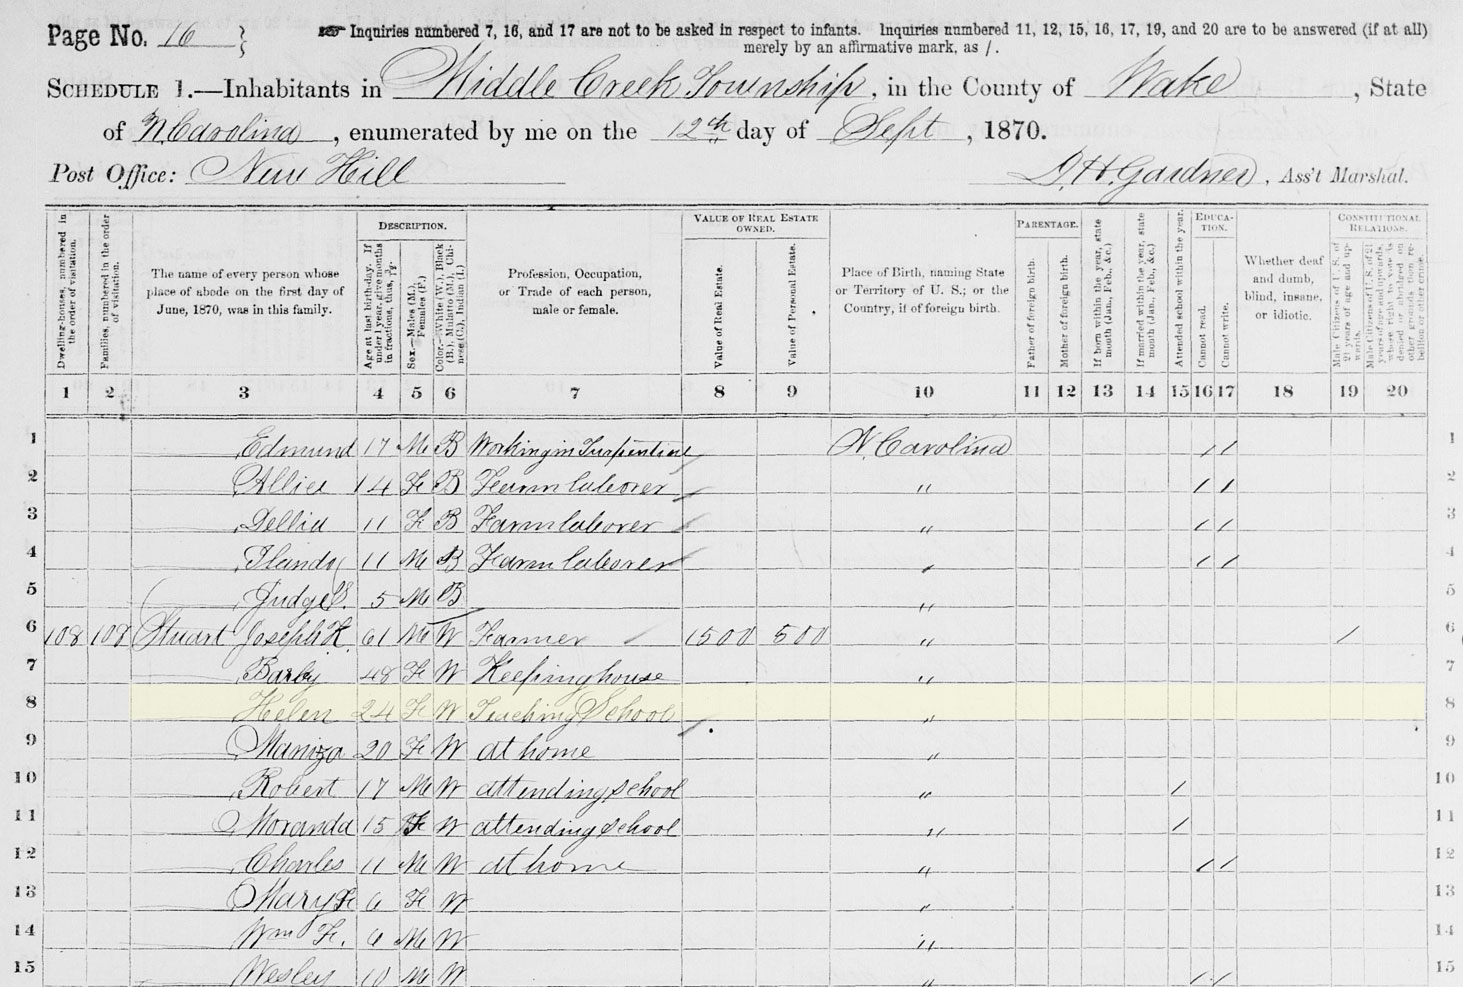 Page No. 16 }
Inquiries numbered 7, 16, and 17 are not to be asked in respect to infants. Inquiries numbered 11, 12, 15, 16, 17, 19, and 20 are to be answered (if at all)
merely by an affirmative mark, as /.
SCHEDULE 1.—Inhabitants in Middle Creek Township, in the County of Wake, State
of N. Carolina, enumerated by me on the 12th day of Sept, 1870.
Post Office: New Hill D. H. Gardner, Ass't Marshal.
Dwelling-houses, numbered in the order of visitation.
Families, numbered in the order of visitation.
The name of every person whose place of abode on the first day of June, 1870, was in this family.
DESCRIPTION.
Age at last birth-day. If under 1 year, give months in fractions, thus, 3/12.
Sex.—Males (M.), Females (F.)
Color.—White (W.), Black (B.), Mulatto (M.), Chinese (C.), Indian (I.)
Profession, Occupation, or Trade of each person, male or female.
VALUE OF REAL ESTATE OWNED.
Value of Real Estate.
Value of Personal Estate.
Place of Birth, naming State or Territory of U. S.; or the Country, if of foreign birth.
PARENTAGE.
Father of foreign birth.
Mother of foreign birth.
If born within the year, state month (Jan., Feb., &c.)
If married within the year, state month (Jan., Feb., &c.)
Attended school within the year.
EDUCATION.
Cannot read.
Cannot write.
Whether deaf and dumb, blind, insane, or idiotic.
CONSTITUTIONAL RELATIONS.
Male Citizens of U. S. of 21 years of age and upwards.
Male Citizens of U. S. of 21 years of age and upwards, whose right to vote is denied or abridged on other grounds than rebellion or other crime.
1 2 3 4 5 6 7 8 9 10 11 12 13 14 15 16 17 18 19 20
1 Edmund 17 M B Working in Turpentine N. Carolina / / 1
2 Allice 14 F B Farm laborer " / / 2
3 Dellia 11 F B Farm laborer " / / 3
4 11 M B Farm laborer " / / 4
5 Judge S. 5 M B " 5
6 108 108 Stuart Joseph H. 61 M W Farmer 1500 500 " / 6
7 Barby 48 F W Keeping house " 7
8 Helen 24 F W Teaching School " 8
9 Maniza 20 F W at home " 9
10 Robert 17 M W attending school " / 10
11 Moranda 15 F W attending school " / 11
12 Charles 11 M W at home " / / 12
13 Mary F 6 F W " 13
14 Wm F. 6 M W " 14
15 Wesley 10 M W " / / 15